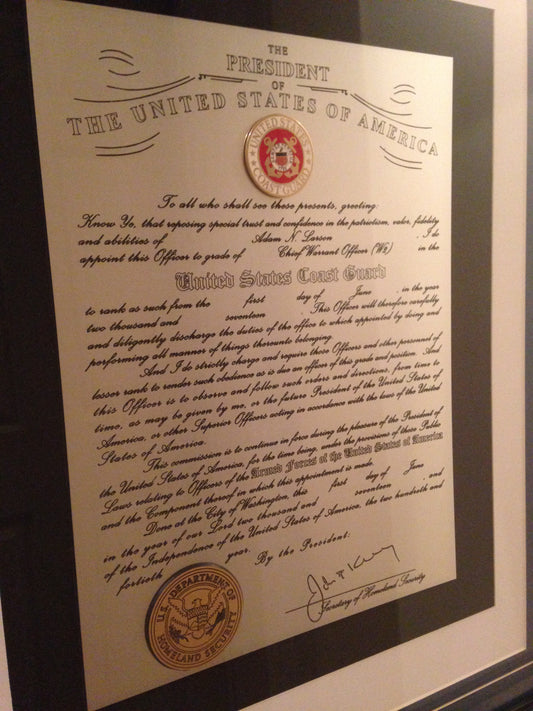 THE
PRESIDENT
OF
THE UNITED STATES OF AMERICA
UNITED STATES
COAST GUARD
To all who shall see these presents, greeting:
Know Ye, that reposing special trust and confidence in the patriotism, valor, fidelity
and abilities of Adam N. Larson . I do
appoint this Officer to grade of Chief Warrant Officer (W2) in the
United States Coast Guard
to rank as such from the first day of June , in the year
two thousand and seventeen . This Officer will therefore carefully
and diligently discharge the duties of the office to which appointed by doing and
performing all manner of things thereunto belonging.
And I do strictly charge and require those Officers and other personnel of
lesser rank to render such obedience as is due an officer of this grade and position. And
this Officer is to observe and follow such orders and directions, from time to
time, as may be given by me, or the future President of the United States of
America, or other Superior Officers acting in accordance with the laws of the United
States of America.
This commission is to continue in force during the pleasure of the President of
the United States of America, for the time being, under the provisions of these Public
Laws relating to Officers of the Armed Forces of the United States of America
and the Component thereof in which this appointment is made.
Done at the City of Washington, this first day of June
in the year of our Lord two thousand seventeen , and
of the Independence of the United States of America, the two hundredth and
fortieth year. By the President:
Secretary of Homeland Security
U.S. DEPARTMENT OF
HOMELAND SECURITY